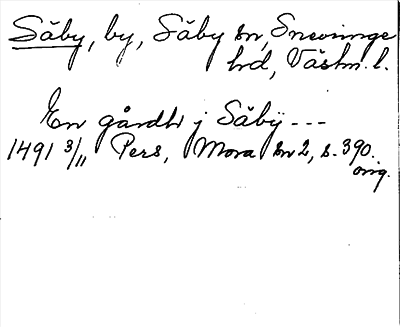 Säby, by, Säby sn, Snevringe
hd, Västm. l.
En gårdh j Säby ---
1491 3/11 Pers, Mora sn 2, s. 390.
orig.